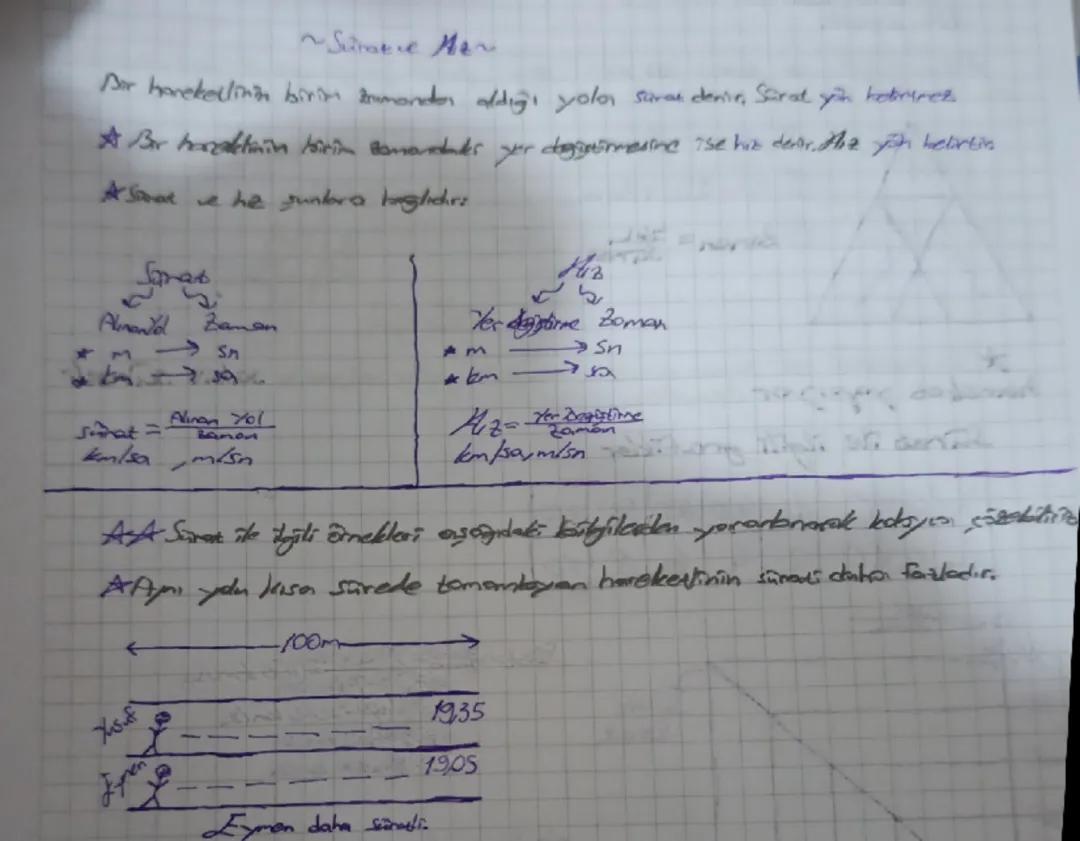 ~Sürat ve Hız~
Bir hareketlinin birim zamanda aldığı yola sürat denir. Sürat yön belirtmez
★ Bir hareketlinin birim zamandaki yer değiştirmesine ise hız denir. Hız yön belirtir.
★ Sürat ve hız şunlara bağlıdır:
Sürat
Hız
Alınan Yol Zaman
Yer değiştirme Zaman
★ m → sn
★ m → sn
★ km → sa
★ km → sa
sürat = Alınan Yol / Zaman
Hız = Yer Değiştirme / Zaman
km/sa , m/sn
km/sa, m/sn
★★ Sürat ile ilgili örnekleri aşağıdaki bilgilerden yararlanarak kolayca çözebiliriz
★ Aynı yolu kısa sürede tamamlayan hareketlinin sürati daha fazladır.
100m
Yusuf 19,35
Eymen 19,05
Eymen daha süratli.